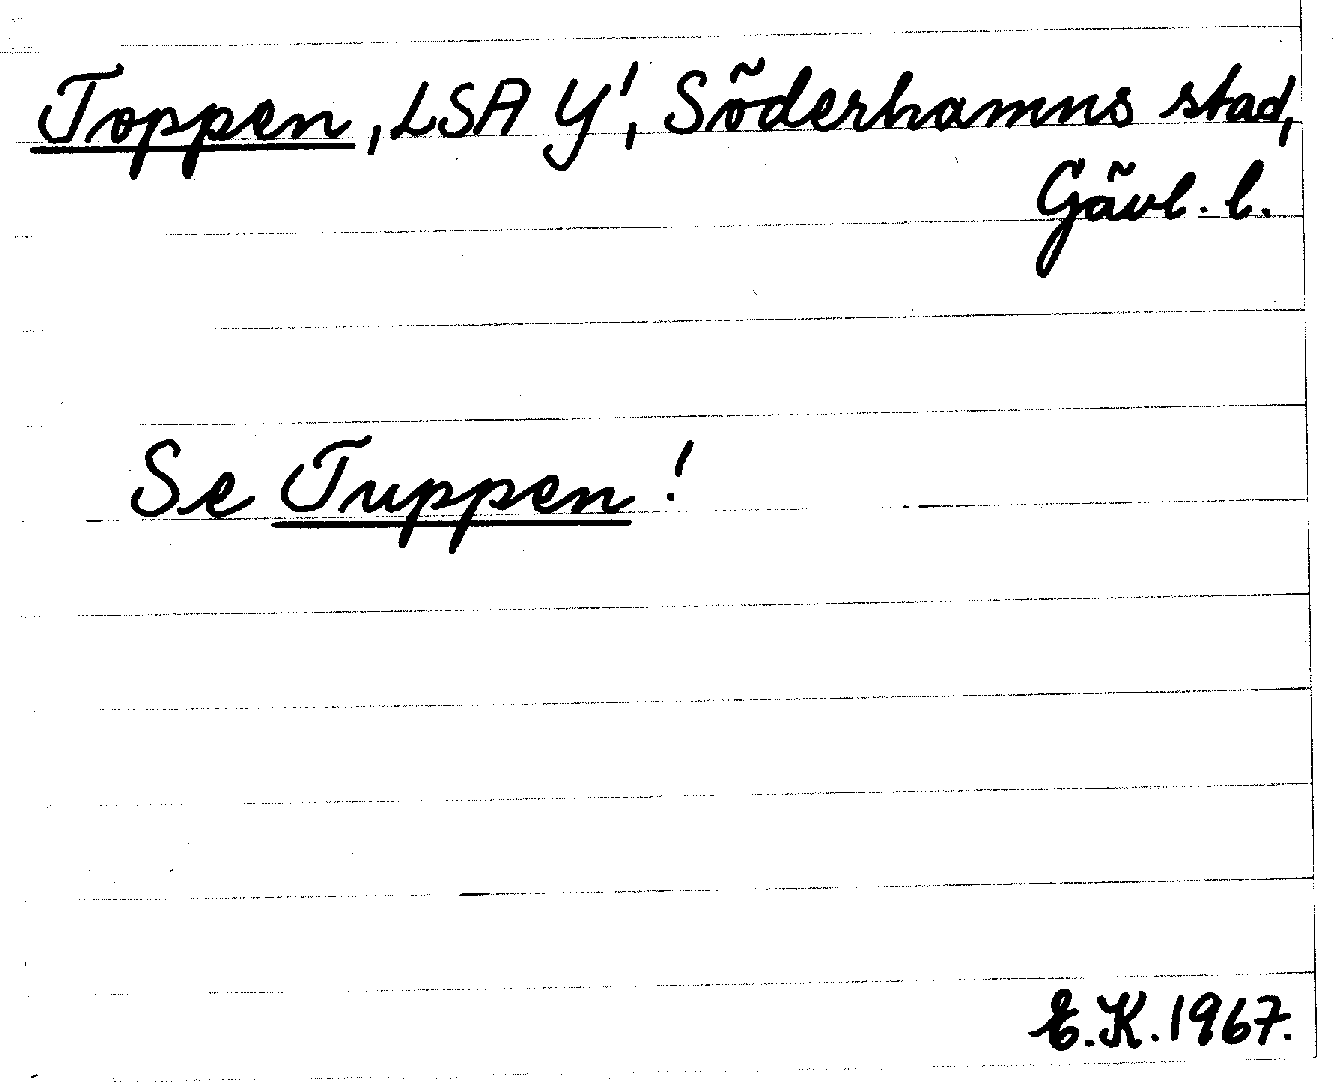 Toppen, LSA Y', Söderhamns stad,
Gävl. l.
Se Tuppen!
E.K. 1967.